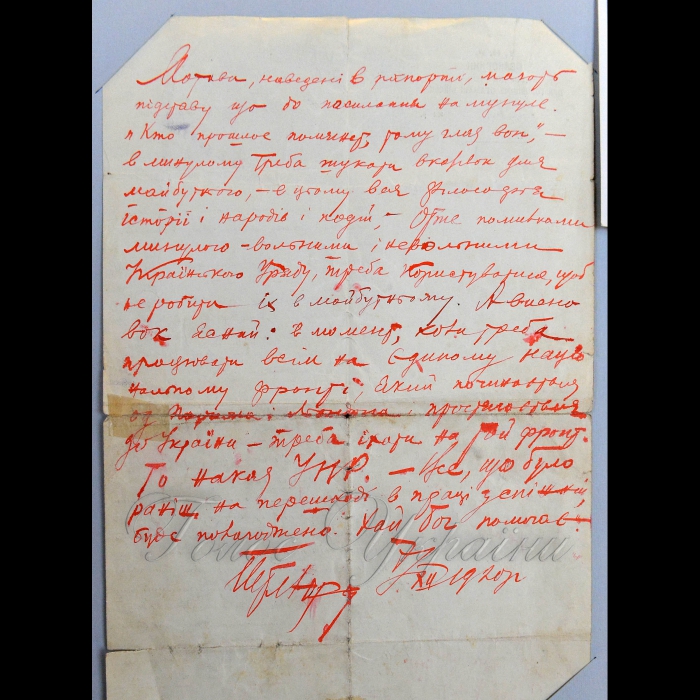 Мотива, наведені в рапорті, мають
підставу що до посилання на минуле.
"Кто прошлое помянет, тому глаз вон", —
в минулому треба шукати вказівок для
майбутного, — в цьому вся філософія
історії і народів і подій, — Отже помилками
минулого — вольними і невольними
Українського Уряду, треба користуватися, щоб
не робити їх в майбутньому. А висно
вок ясний: в момент, коли треба
працювати всім на єдиному націо
нальному фронті, який починається
од і простягається
до України — треба їхати на той фронт.
То наказ УНР. — Все, що було
раніш на перешкоді в праці успішній,
буде полагоджено. Хай бог помогає.
Голос України